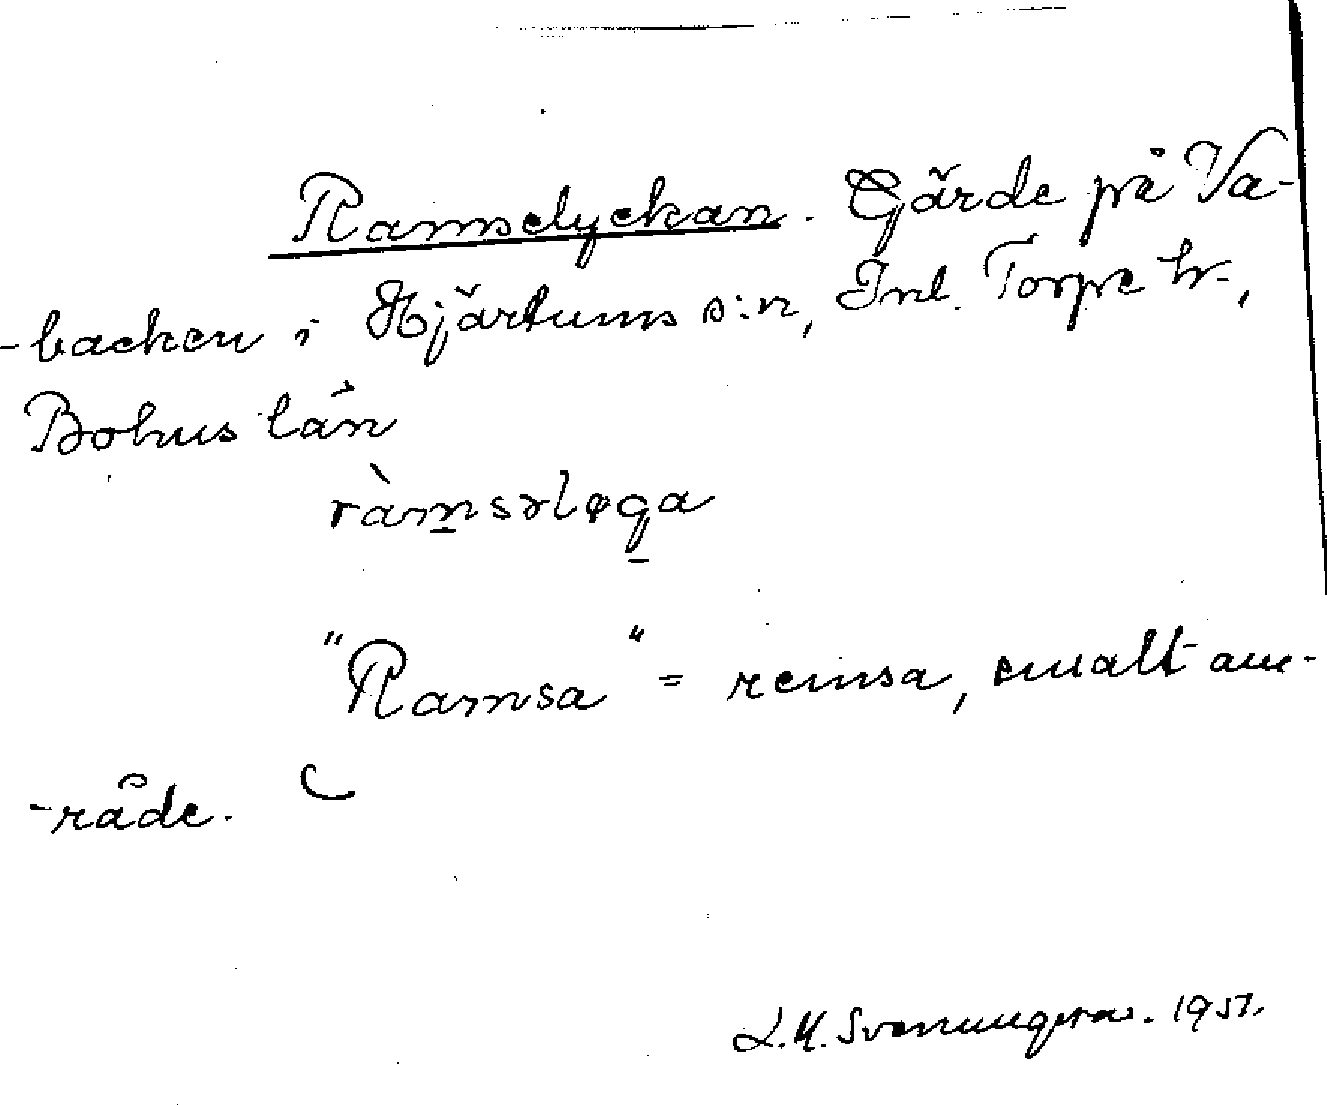 Ramselyckan. Gärde på Va-
-backen i Hjärtums s:n, Inl. Torpe hr.,
Bohus län
ràmsəløqa
"Ramsa" = remsa, smalt om-
-råde.
1957.